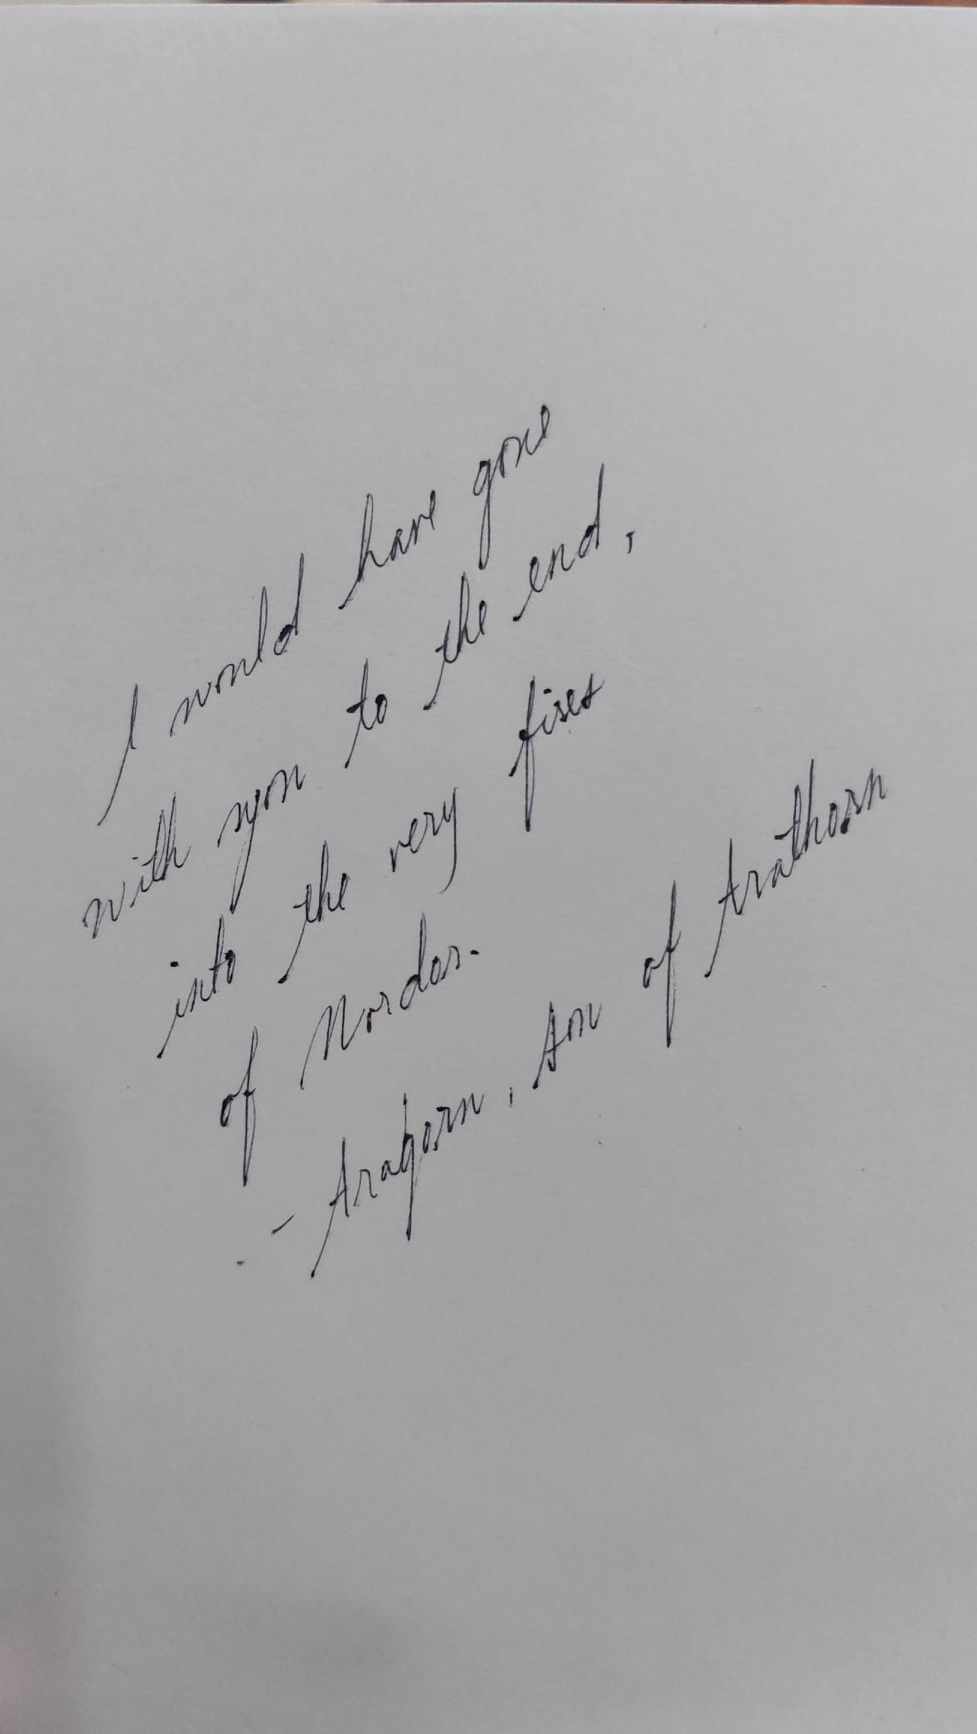 I would have gone
with you to the end,
into the very fires
of Mordor.
- Aragorn, son of Arathorn